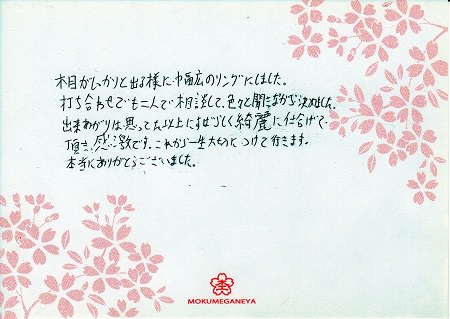 木目がしっかりと出る様に、幅広のリングにしました。
打ち合わせでも二人で相談して、色々と聞きながら決めました。
出来あがりは思ってた以上にすばらしく綺麗に仕上げて
頂き、感激です。これから一生大切につけて行きます。
本当にありがとうございました。
MOKUMEGANEYA